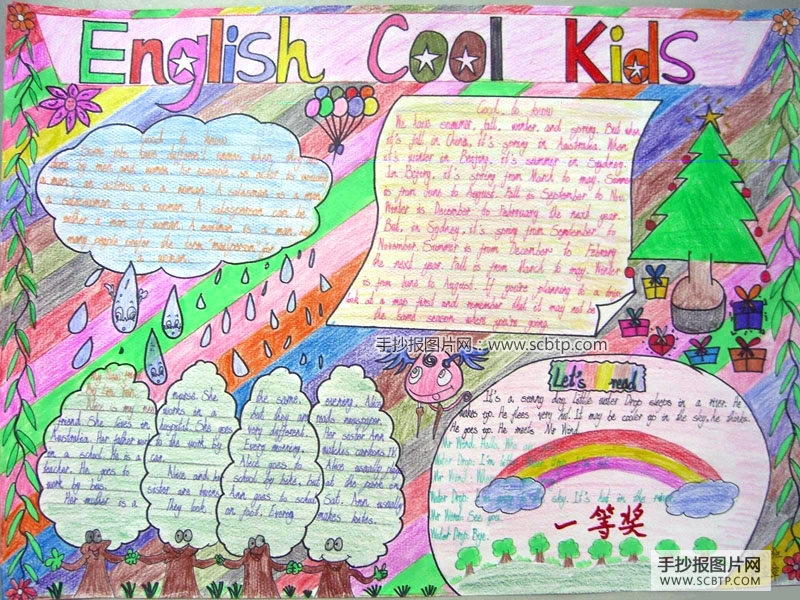 手抄报图片网
WWW.SCBTP.COM
English Cool Kids
Good to know
Some jobs have different names when they're
done by men and women. For example, an actor is usually
a man, an actress is a woman. A salesman is a man,
a saleswoman is a woman. A salesperson can be
either a man or woman. A mailman is a man, but
many people prefer the term mailperson for
a woman.
Good to know
We have summer, fall, winter and spring. But when
it's fall in China, it's spring in Australia. When
it's winter in Beijing, it's summer in Sydney.
In Beijing, it's spring from March to may. Summer
is from June to August. Fall is September to Nov.
Winter is December to February the next year.
But, in Sydney, it's spring from September to
November. Summer is from December to February
the next year. Fall is from March to may. Winter
is from June to August. If you're planning to a
look at a map first and remember that it may not be
the same season where you're going.
手抄报图片网：www.scbtp.com
Alice is my
friend. She lives in
Australia. Her father works
in a school. He is a
teacher. He goes to
work by bus.
Her mother is a
nurse. She
works in a
hospital. She goes
to work by
car.
Alice and her
sister are twins.
They look
the same,
but they are
very different.
Every morning,
Alice goes to
school by bike, but
Ann goes to school
on foot. Every
evening, Alice
reads newspaper.
Her sister Ann
watches cartoons. It
Alice usually
at the
Sat. Ann usually
makes kites.
Let's read
It's a sunny day. Little Water Drop sleeps in a river. He
wakes up. He feels very hot. It may be cooler up in the sky, he thinks.
He goes up. He meets Mr Wind.
Mr Wind: Hello,
Water Drop: I'm
Mr Wind:
Water Drop: sky. It's hot in the river.
Mr Wind: See you.
Water Drop: Bye.
一等奖
手抄报图片网
WWW.SCBTP.COM